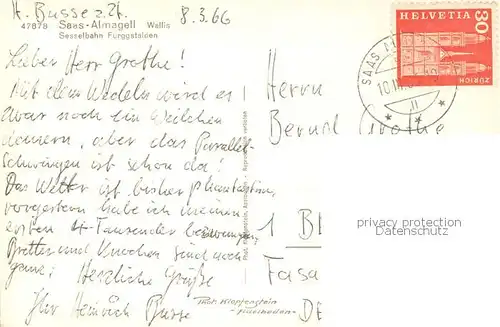 H. Busse z. Zt.
8.3.66
47878 Saas-Almagell Wallis
Sesselbahn Furggstalden
HELVETIA
30
ZÜRICH
SAAS
Lieber Herr Grothe!
Mit dem Wedeln wird es
zwar noch ein Weilchen
dauern, aber das Parallel-
schwingen ist schon da!
Das Wetter ist bisher phantastisch,
vorgestern habe ich meinen
ersten 4-Tausender bezwungen
Bretter und Knochen sind noch
ganz! Herzliche Grüße
Ihr Heinrich Busse
Herrn
Bernd Grothe
1 B
Fasa
Phot. Klopfenstein
Adelboden
privacy protection
Datenschutz